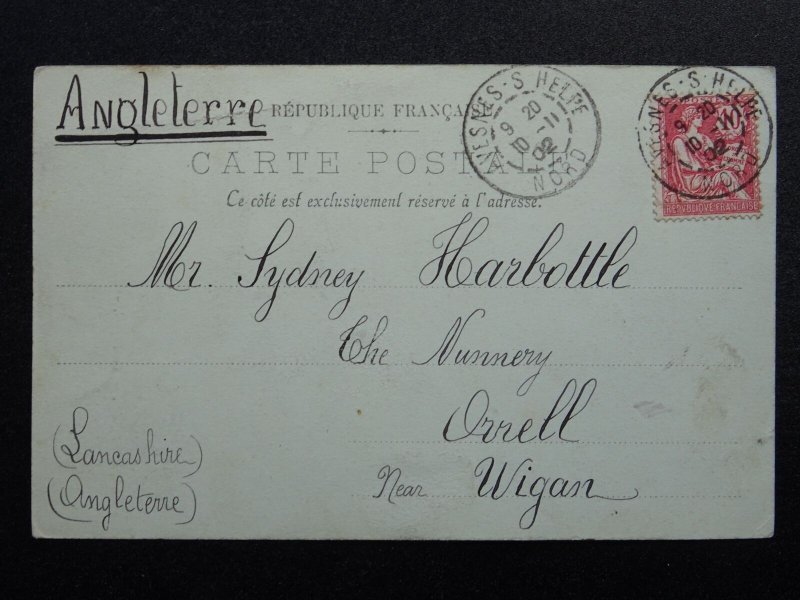 Angleterre
RÉPUBLIQUE FRANÇAISE
CARTE POSTALE
Ce côté est exclusivement réservé à l'adresse.
AVESNES-S-HELPE
9 20
10 -11
02
NORD
AVESNES-S-HELPE
9 20
10 -11
02
NORD
REPUBLIQUE FRANÇAISE
Mr. Sydney Harbottle
The Nunnery
Orrell
Near Wigan
(Lancashire)
(Angleterre)